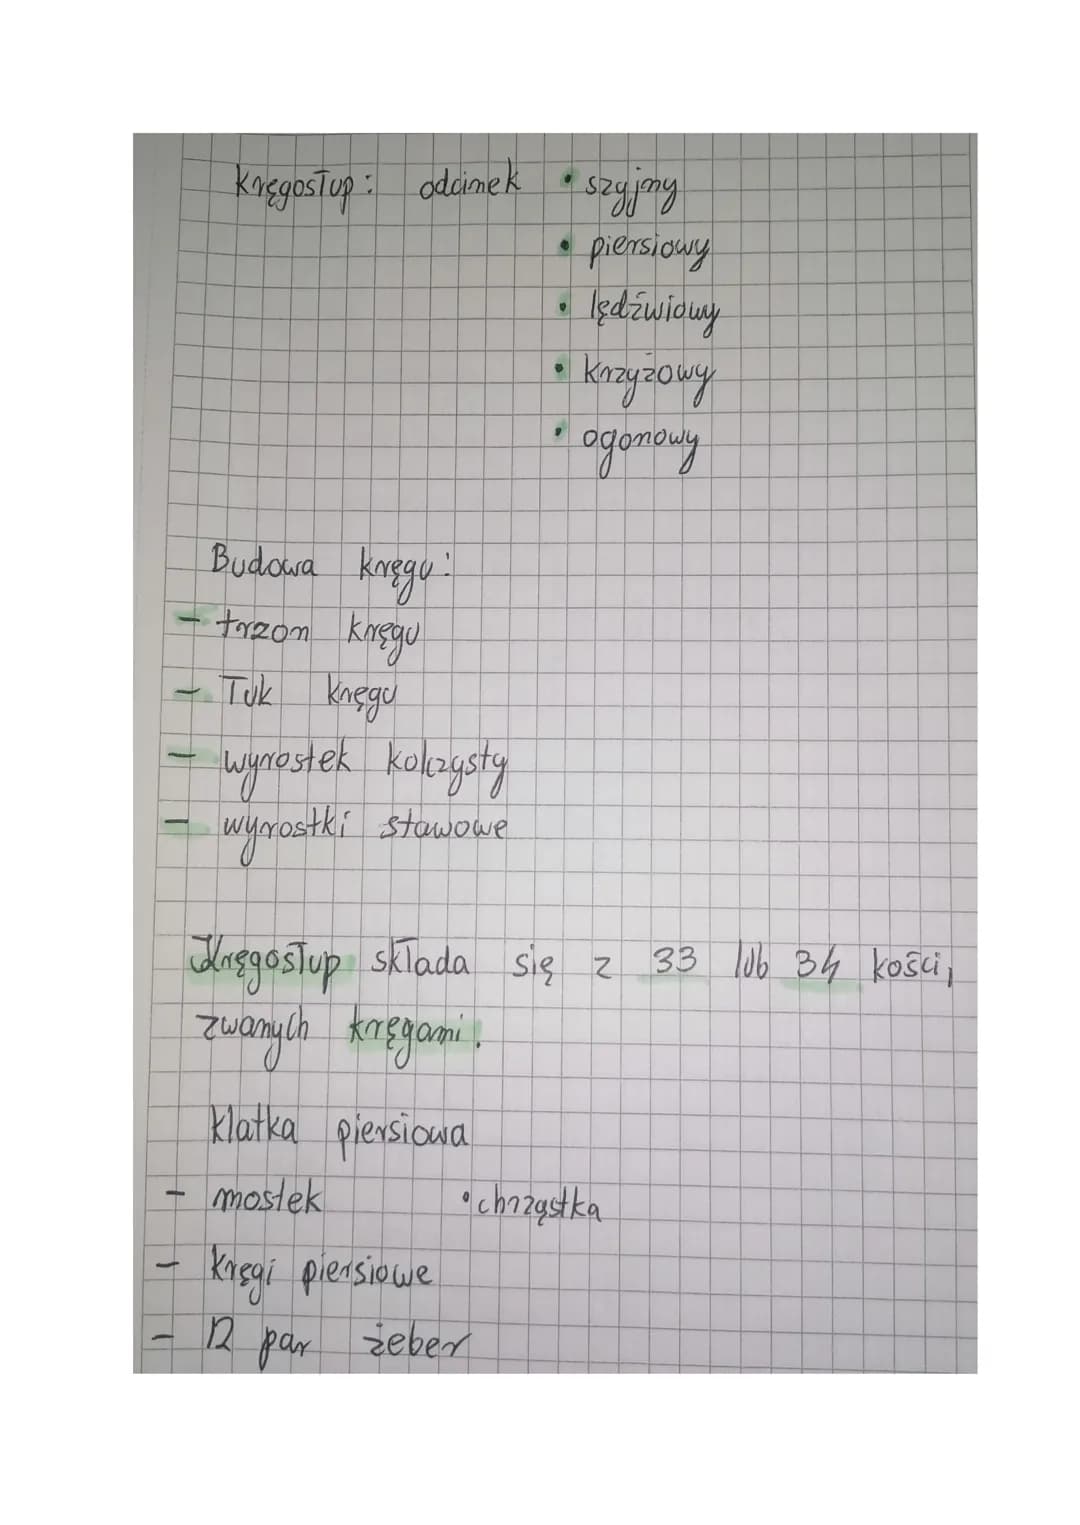 Kręgosłup: odcinek • szyjny
• piersiowy
• lędźwiowy
• krzyżowy
• ogonowy
Budowa kręgu:
- trzon kręgu
- łuk kręgu
- wyrostek kolczysty
- wyrostki stawowe
Kręgosłup składa się z 33 lub 34 kości,
zwanych kręgami.
Klatka piersiowa
- mostek • chrząstka
- kręgi piersiowe
- 12 par żeber